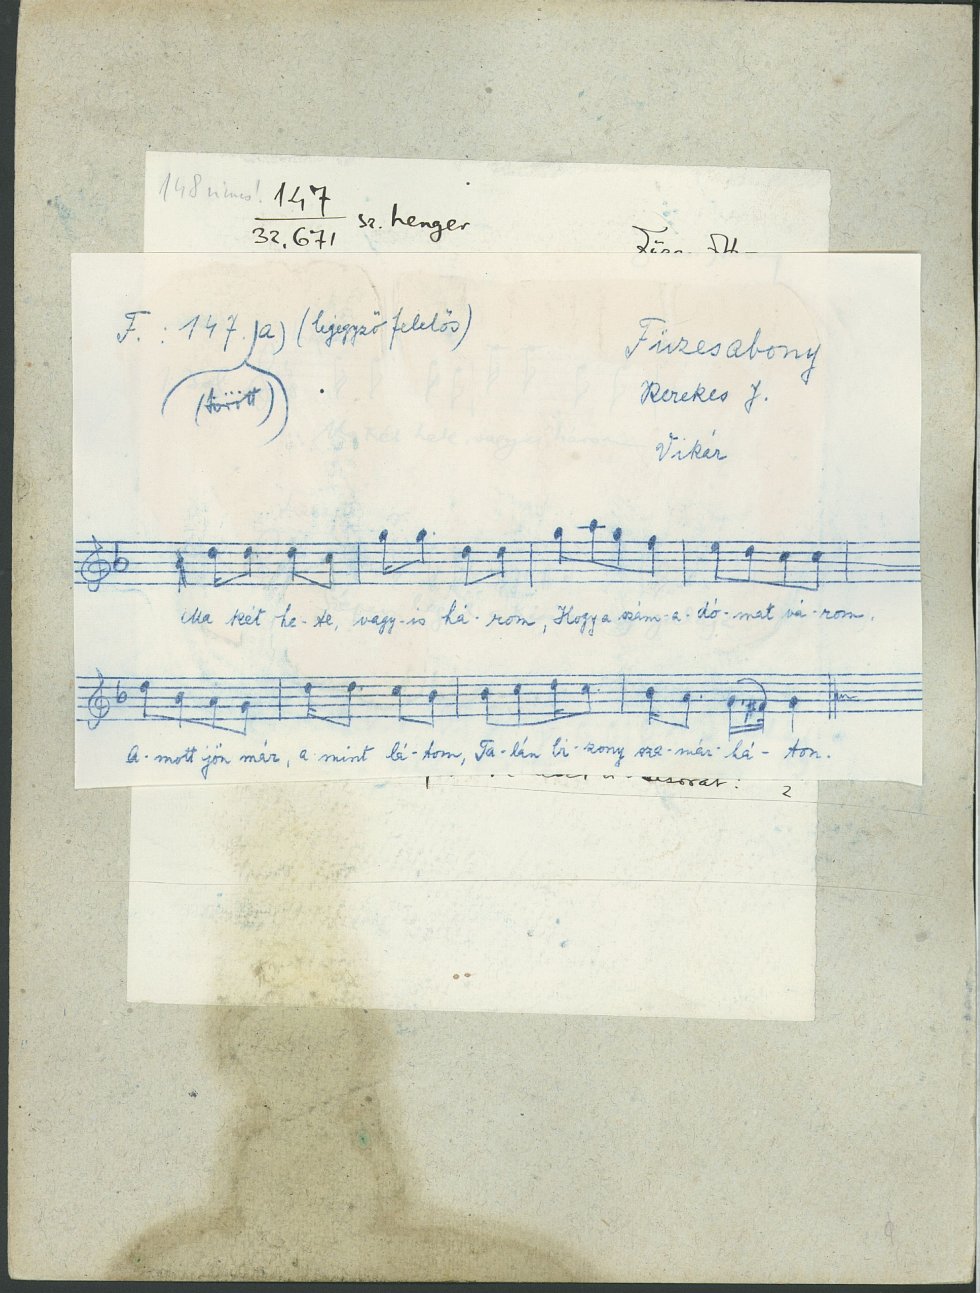 148 nincs!
147
32.671 sz. henger
F.: 147. a) (lejegyző felelős)
(törött)
Füzesabony
Kerekes J.
Vikár
Ma két he-te, vagy-is há-rom, Hogy a szám-a-dó-mat vá-rom.
A-mott jön már, a-mint lá-tom, Ta-lán bi-zony sza-már-há-ton.
2